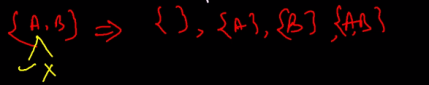 {A, B} ⇒ { }, {A}, {B} {A,B}
✓ ✗